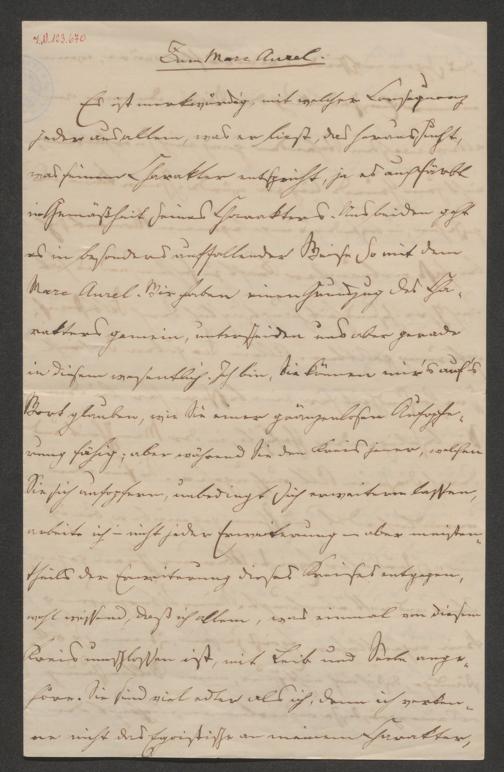 I.N. 123.670
Zum Marc Aurel.
Es ist merkwürdig, mit welcher Consequenz
jeder aus allem, was er liest, das heraussucht,
was seinem Charakter entspricht, ja es auffärbt
in Gemäßheit seines Charakters. Uns beiden geht
es in besonders auffallender Weise so mit dem
Marc Aurel. Wir haben einen Grundzug des Cha-
rakters gemein, unterscheiden uns aber gerade
in diesem wesentlich. Ich bin, Sie können mir's auf's
Wort glauben, wie Sie einer gränzenlosen Aufopfe-
rung fähig; aber während Sie den Kreis jener, welchen
Sie sich aufopfern, unbedingt sich erweitern lassen,
arbeite ich – nicht jeder Erweiterung – aber meisten-
theils der Erweiterung dieses Kreises entgegen,
wohl wissend, daß ich allem, was einmal von diesem
Kreis umschlossen ist, mit Leib und Seele ange-
höre. Sie sind viel edler als ich, denn ich verken-
ne nicht das Egoistische an meinem Charakter,